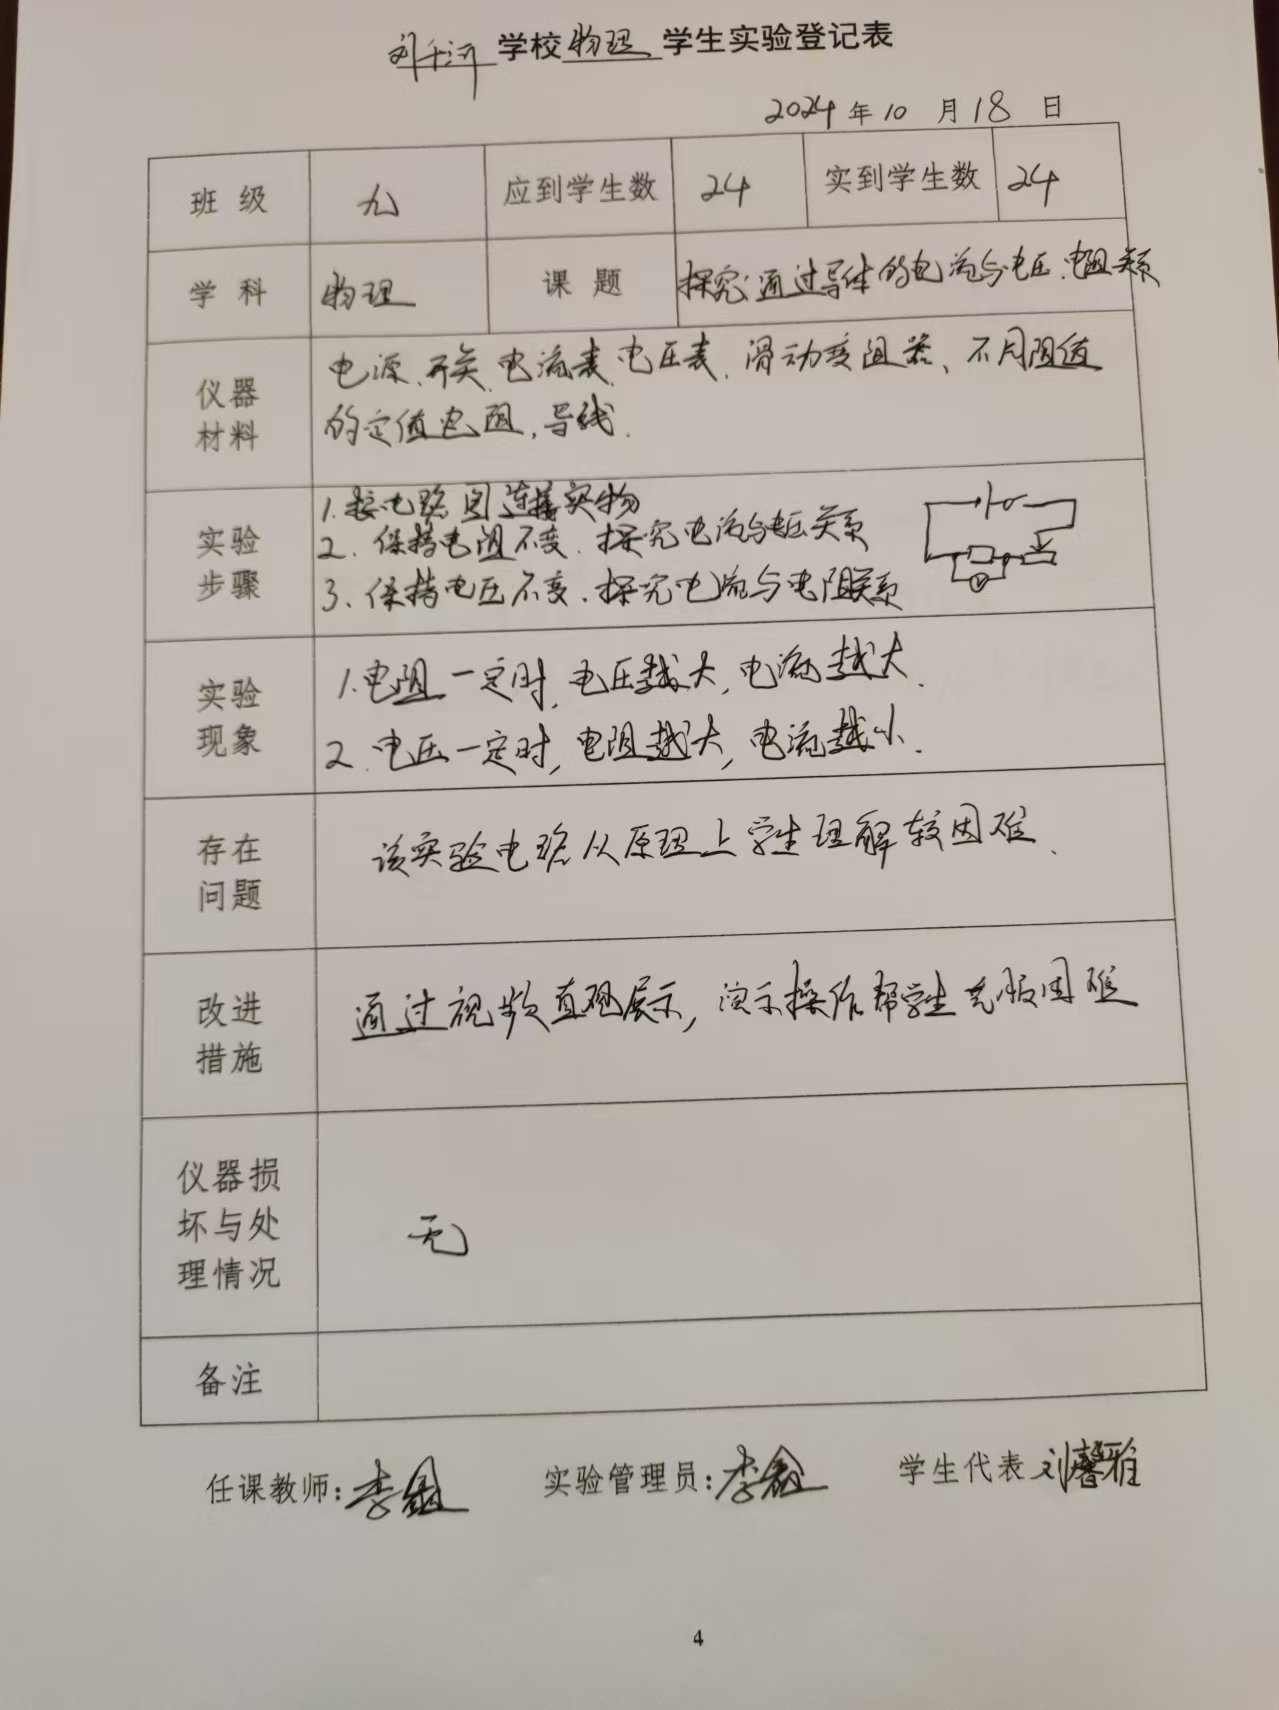 学校物理学生实验登记表
2024年10月18日
班级 九 应到学生数 24 实到学生数 24
学科 物理 课题 探究:通过导体的电流与电压、电阻关系
仪器材料 电源、开关、电流表、电压表、滑动变阻器、不同阻值
的定值电阻,导线.
实验步骤 1.按电路图连接实物
2.保持电阻不变.探究电流与电压关系
3、保持电压不变.探究电流与电阻关系
V
实验现象 1.电阻一定时,电压越大,电流越大.
2.电压一定时,电阻越大,电流越小.
存在问题 该实验电路从原理上学生理解较困难.
改进措施 通过视频直观展示,演示操作帮学生克服困难
仪器损坏与处理情况 无
备注
任课教师:李鑫 实验管理员:李鑫 学生代表 刘馨雅
4